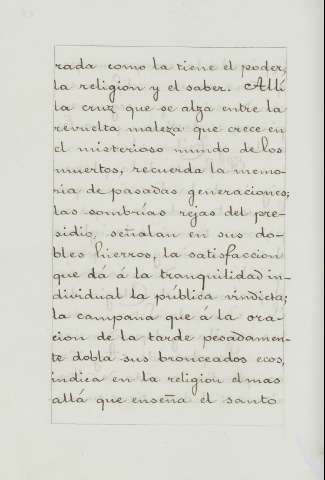 rada como la tiene el poder,
la religion y el saber. Allí
la cruz que se alza entre la
revuelta maleza que crece en
el misterioso mundo de los
muertos, recuerda la memo-
ria de pasadas generaciones;
las sombrías rejas del pre-
sidio, señalan en sus do-
bles hierros, la satisfaccion
que dá á la tranquilidad in-
dividual la pública vindicta;
la campana que á la ora-
cion de la tarde pesadamen-
te dobla sus bronceados ecos,
indica en la religion el mas
allá que enseña el santo